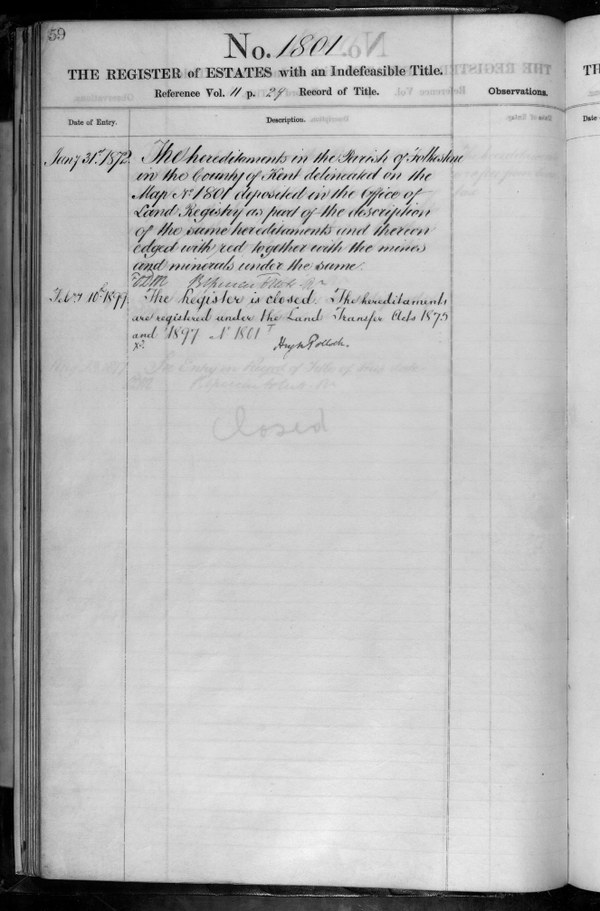 59
No. 1801
THE REGISTER of ESTATES with an Indefeasible Title.
Reference Vol. 11 p. 29 Record of Title.
Observations.
Date of Entry.
Description.
Jany 31st 1872. The hereditaments in the Parish of Folkestone
in the County of Kent delineated on the
Map No 1801 deposited in the Office of
Land Registry as part of the description
of the same hereditaments and thereon
edged with red together with the mines
and minerals under the same.
Feby 10th 1899. The Register is closed. The hereditaments
are registered under the Land Transfer Acts 1875
and 1897 No 1801 T
Hugh Pollock.
Closed
TH
Date